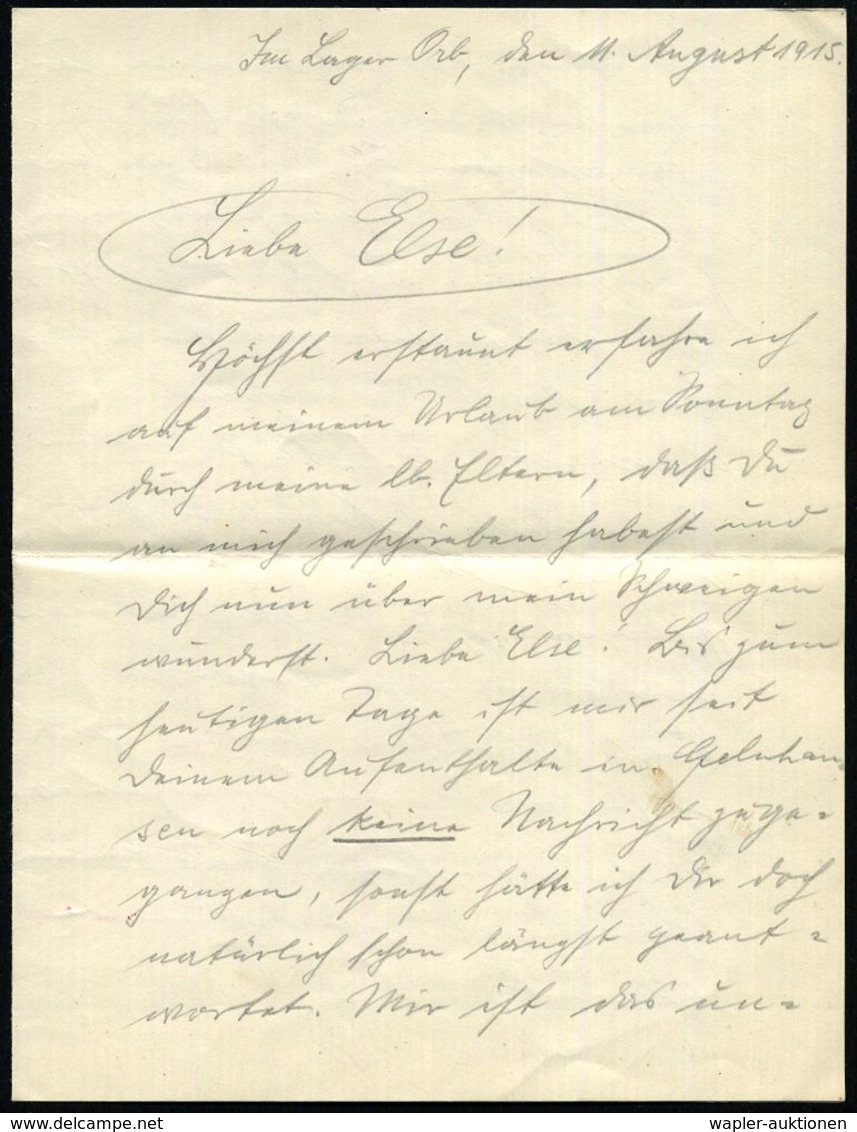 Im Lager Orb, den 11. August 1915.
Liebe Else!
Höchst erstaunt erfahre ich
auf meinem Urlaub am Sonntag
durch meine lb. Eltern, daß Du
an mich geschrieben habest und
Dich nun über mein Schweigen
wunderst. Liebe Else! Bis zum
heutigen Tage ist mir seit
Deinem Aufenthalte in Gelnhau-
sen noch keine Nachricht zuge=
gangen, sonst hätte ich Dir doch
natürlich schon längst geant=
wortet. Mir ist das un=
wapler-auktionen